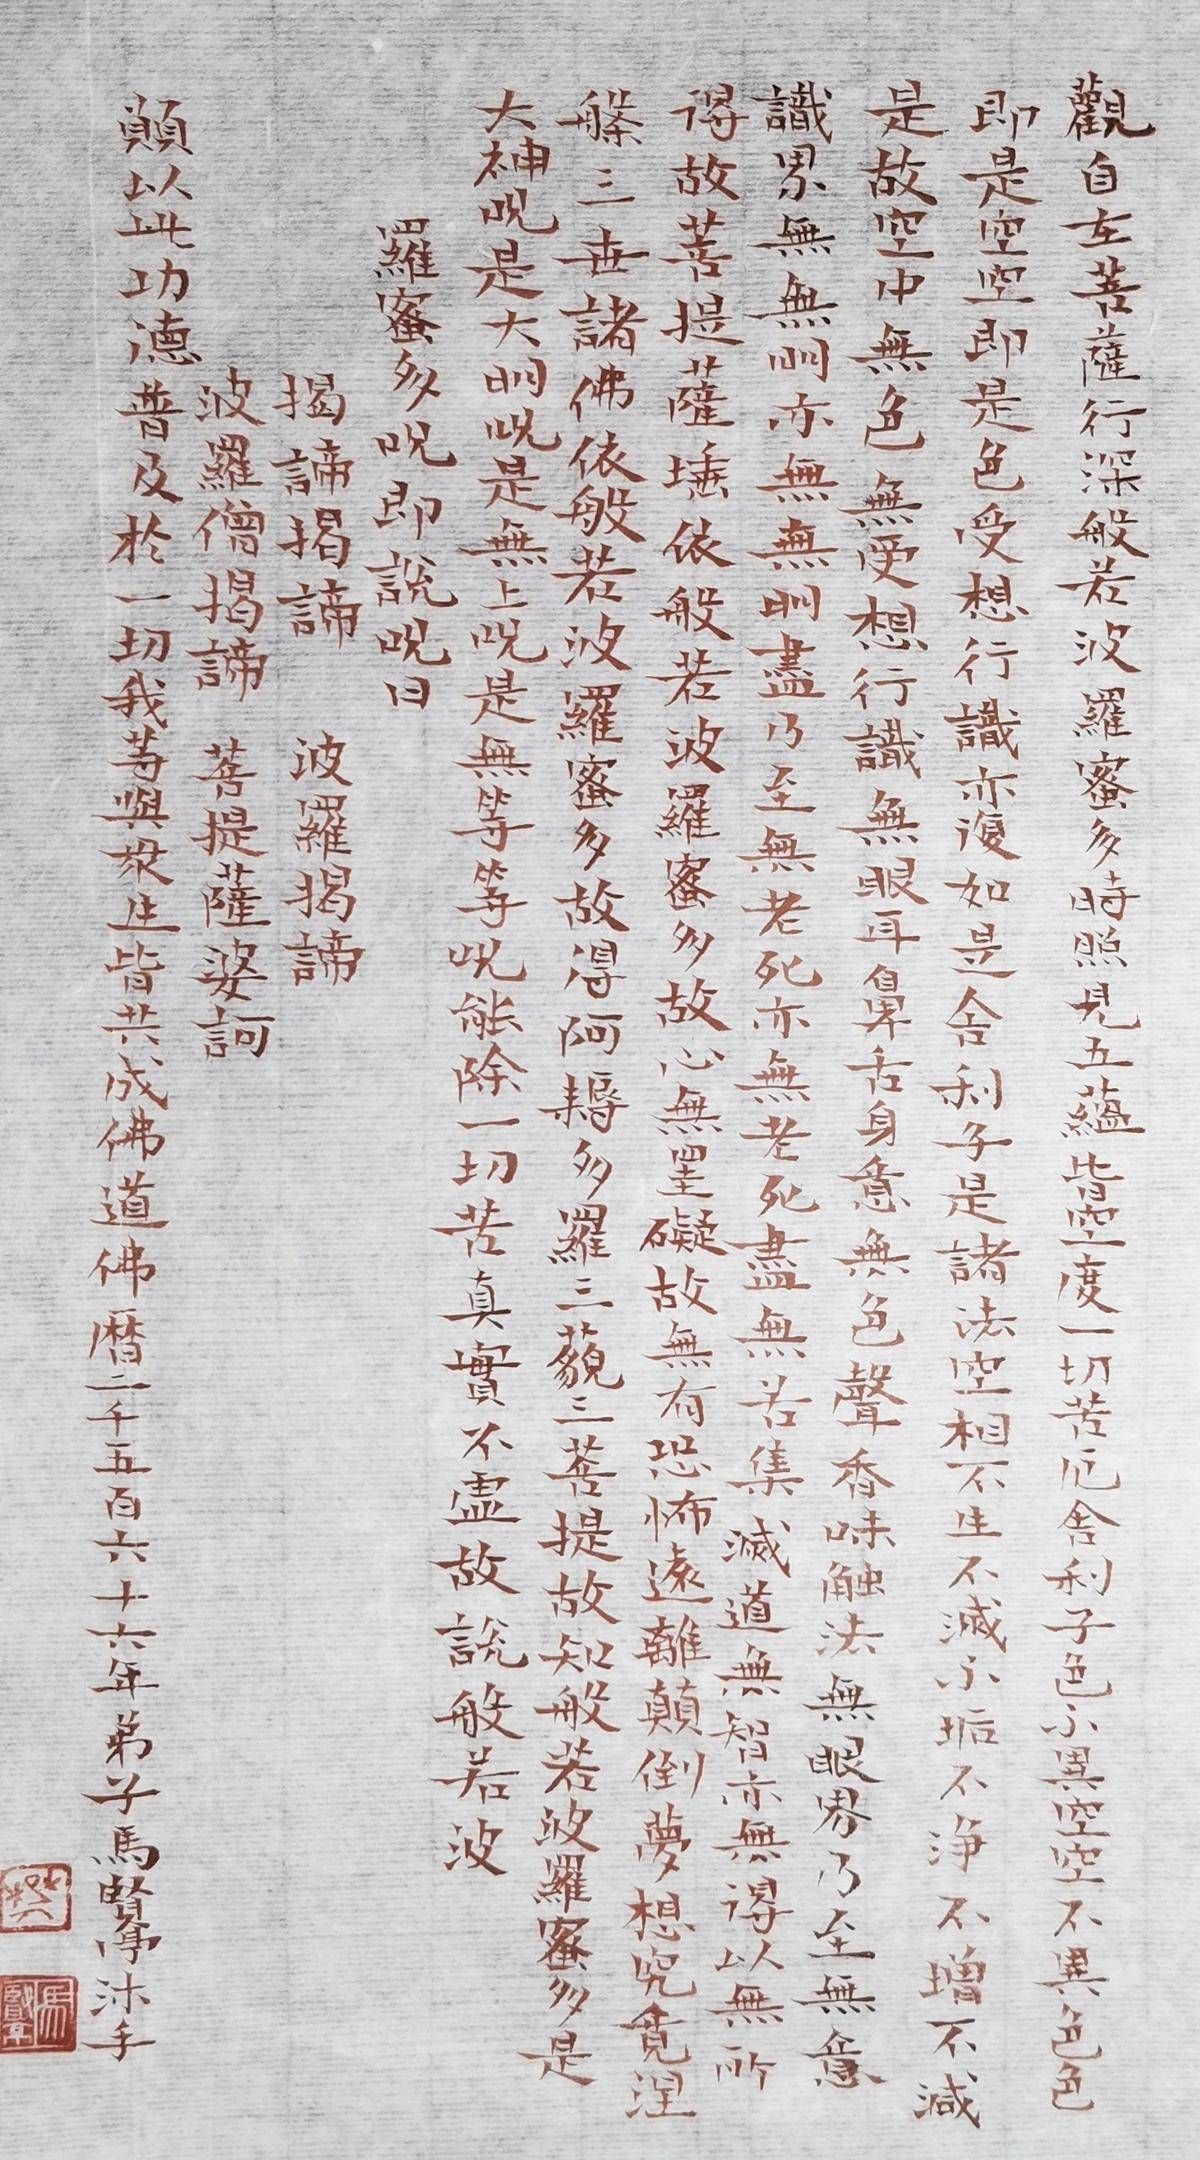 觀自在菩薩行深般若波羅蜜多時照見五蘊皆空度一切苦厄舍利子色不異空空不異色色
即是空空即是色受想行識亦復如是舍利子是諸法空相不生不滅不垢不浄不增不減
是故空中無色無受想行識無眼耳鼻舌身意無色聲香味触法無眼界乃至無意
識界無無明亦無無明盡乃至無老死亦無老死盡無苦集滅道無智亦無得以無所
得故菩提薩埵依般若波羅蜜多故心無罣礙故無有恐怖遠離顛倒夢想究竟涅
槃三世諸佛依般若波羅蜜多故得阿耨多羅三藐三菩提故知般若波羅蜜多是
大神呪是大明呪是無上呪是無等等呪能除一切苦真實不虛故說般若波
羅蜜多呪即說呪曰
揭諦揭諦 波羅揭諦
波羅僧揭諦 菩提薩婆訶
願以此功德普及於一切我等與眾生皆共成佛道佛曆二千五百六十六年弟子馬賢亭沐手
馬賢亭